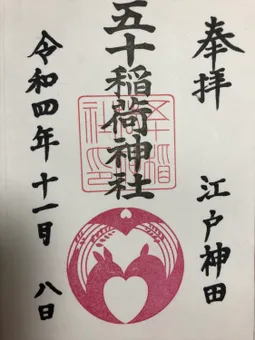 奉拝
江戸神田
五十稲荷神社
令和四年十一月八日